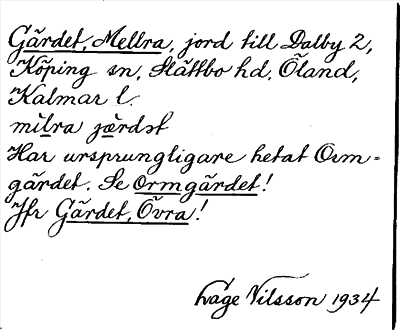 Gärdet, Mellra, jord till Dalby 2,
Köping sn, Slättbo hd, Öland,
Kalmar l.
mìlra jærdət
Har ursprungligare hetat Orm-
gärdet. Se Ormgärdet!
Jfr Gärdet, Övra!
Låge Nilsson 1934